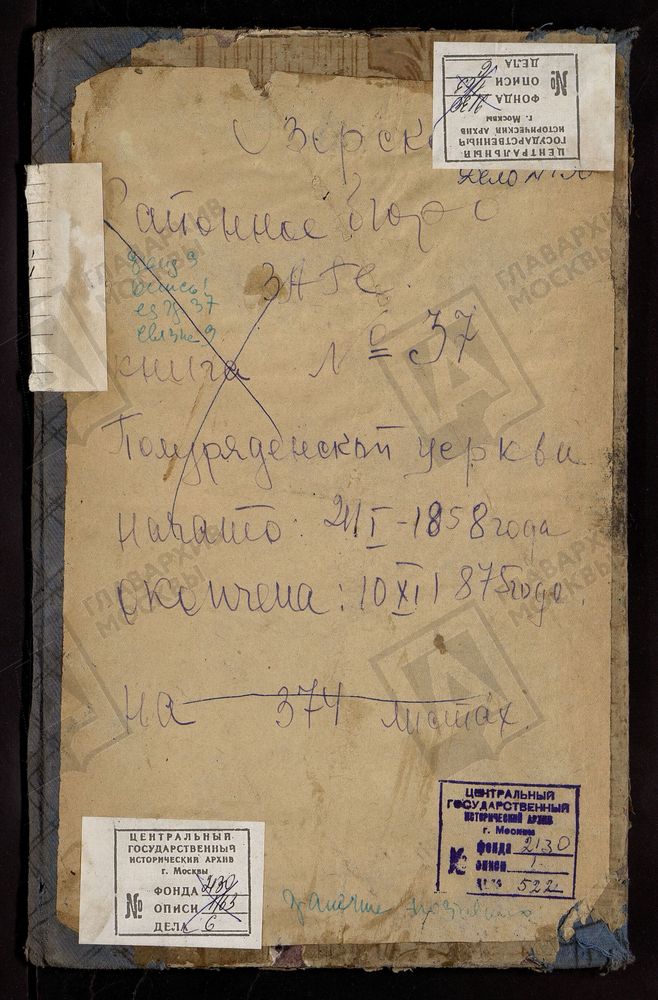 ЦЕНТРАЛЬНЫЙ
ГОСУДАРСТВЕННЫЙ
ИСТОРИЧЕСКИЙ АРХИВ
г. Москвы
№
ФОНДА
ОПИСИ
ДЕЛА
Озерск
Дело №
Районное бюро
ЗАГС
фонд 9
опись 1
ед хр 37
связка 9
книга № 37
Помуряденской церкви
начато: 2/I-1858 года
окончена: 10 XI 1875 года
на 374 листах
ЦЕНТРАЛЬНЫЙ
ГОСУДАРСТВЕННЫЙ
ИСТОРИЧЕСКИЙ АРХИВ
г. Москвы
№
фонда 2130
описи 1
522
ЦЕНТРАЛЬНЫЙ
ГОСУДАРСТВЕННЫЙ
ИСТОРИЧЕСКИЙ АРХИВ
г. Москвы
№
ФОНДА 2130
ОПИСИ 1163
ДЕЛА 6
ГЛАВАРХИВ
МОСКВЫ